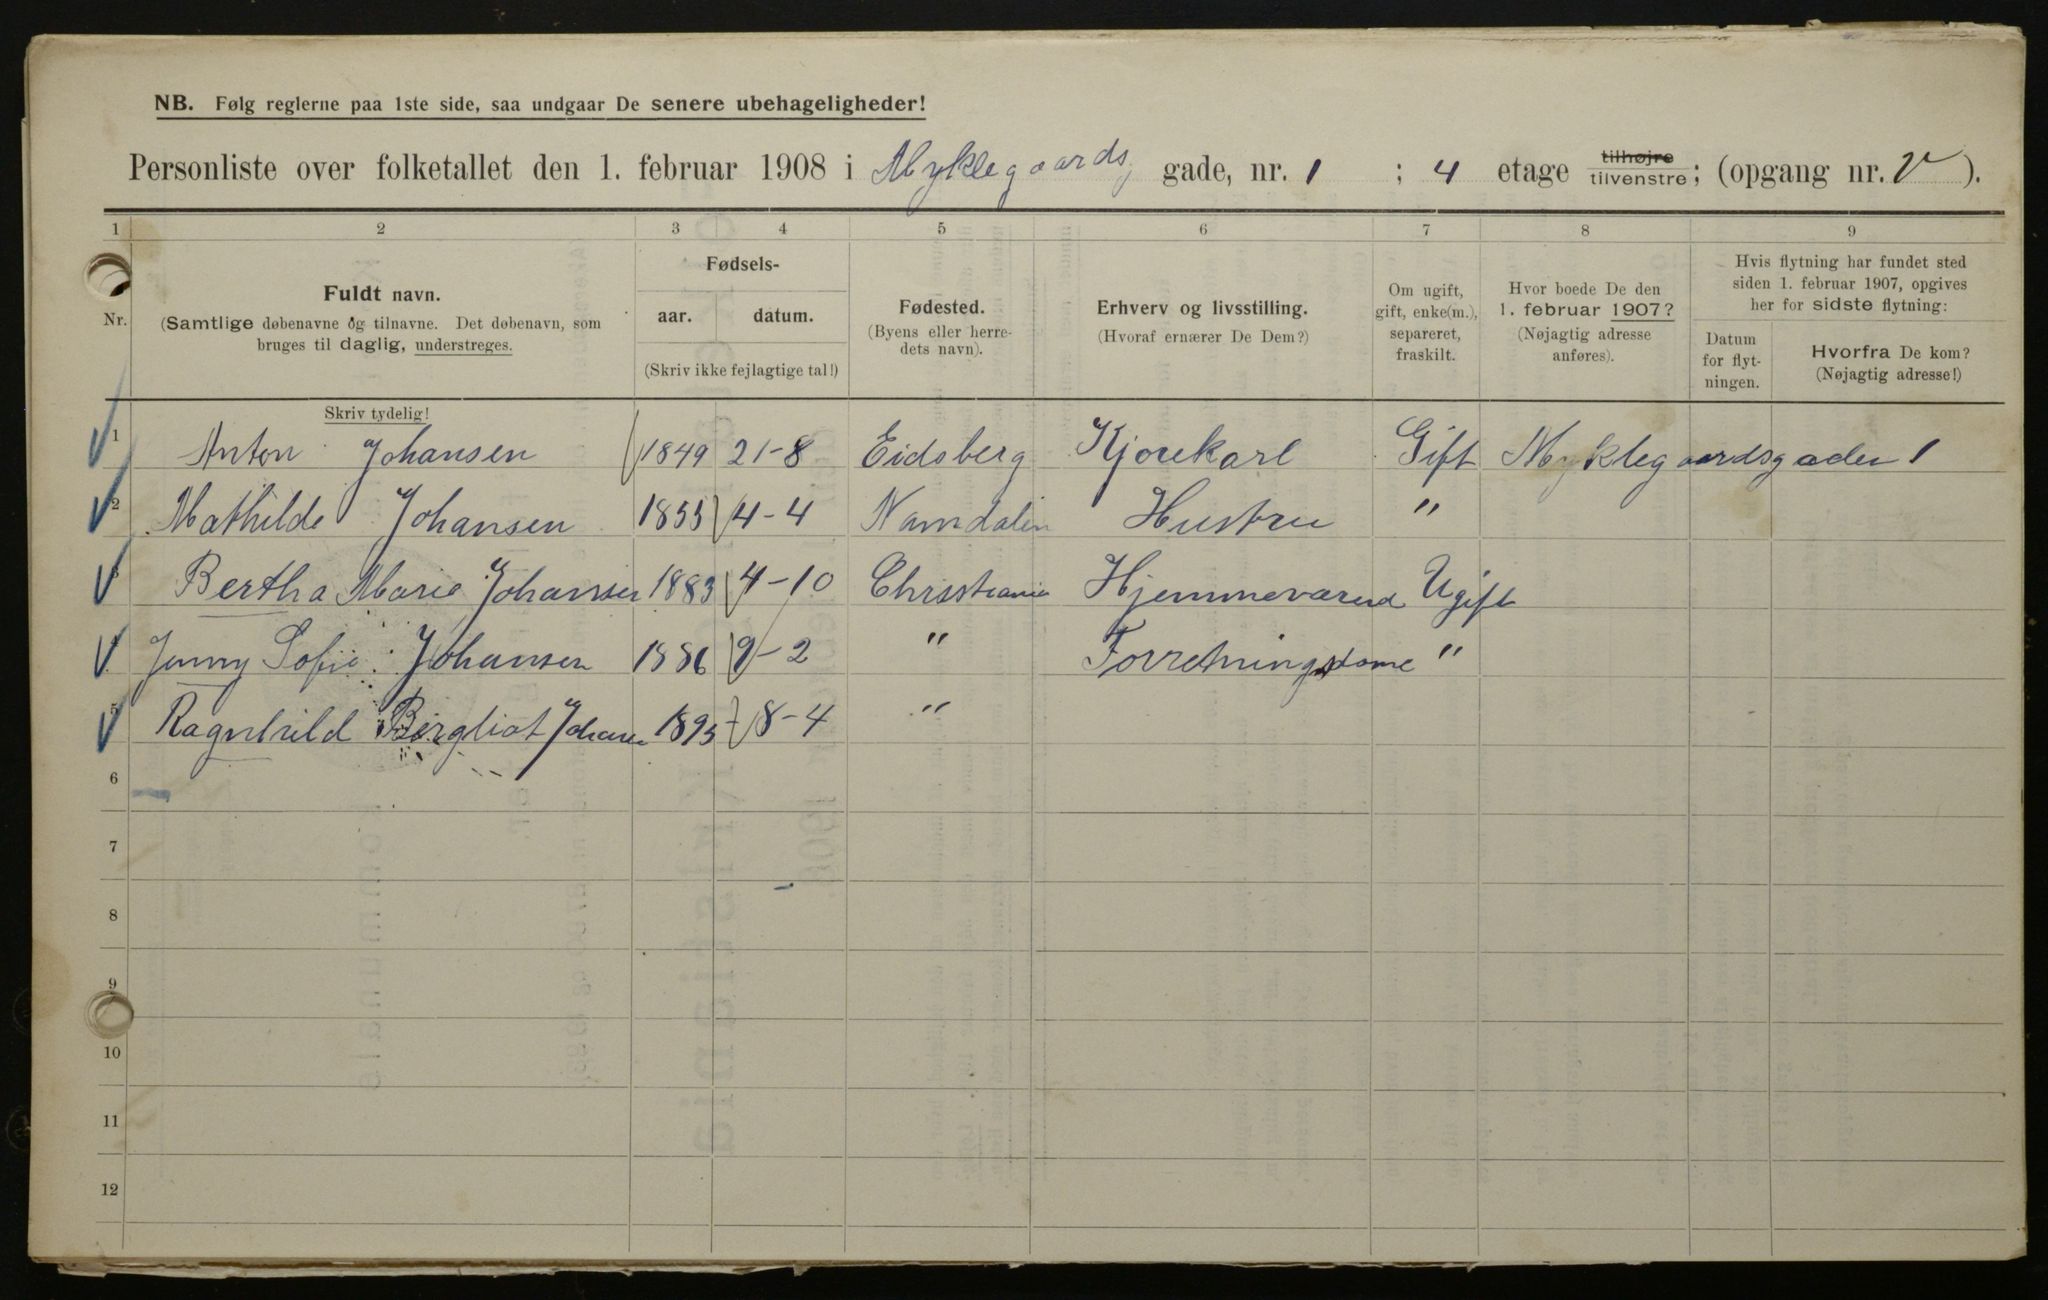 NB. Følg reglerne paa 1ste side, saa undgaar De senere ubehageligheder!
Personliste over folketallet den 1. februar 1908 i Myklegaards gade, nr. 1 ; 4 etage tilhøjre tilvenstre; (opgang nr. V ).
1 2 3 4 5 6 7 8 9
Nr.
Fuldt navn.
(Samtlige døbenavne og tilnavne. Det døbenavn, som
bruges til daglig, understreges.
Skriv tydelig!
Fødsels-
aar. datum.
(Skriv ikke fejlagtige tal!)
Fødested.
(Byens eller herre-
dets navn).
Erhverv og livsstilling.
(Hvoraf ernærer De Dem?)
Om ugift,
gift, enke(m.),
separeret,
fraskilt.
Hvor boede De den
1. februar 1907?
(Nøjagtig adresse
anføres).
Hvis flytning har fundet sted
siden 1. februar 1907, opgives
her for sidste flytning:
Datum
for flyt-
ningen.
Hvorfra De kom?
(Nøjagtig adresse!)
1 Anton Johansen 1849 21-8 Eidsberg Kjørekarl Gift Myklegaardsgaden 1
2 Mathilde Johansen 1855 4-4 Namdalen Hustru "
3 Bertha Marie Johansen 1883 4-10 Christiania Hjemmeværend Ugift
4 Jenny Sofie Johansen 1886 9-2 " Forretningsdame "
5 Ragnhild Bergliot Johansen 1895 8-4 "
6
7
8
9
10
11
12